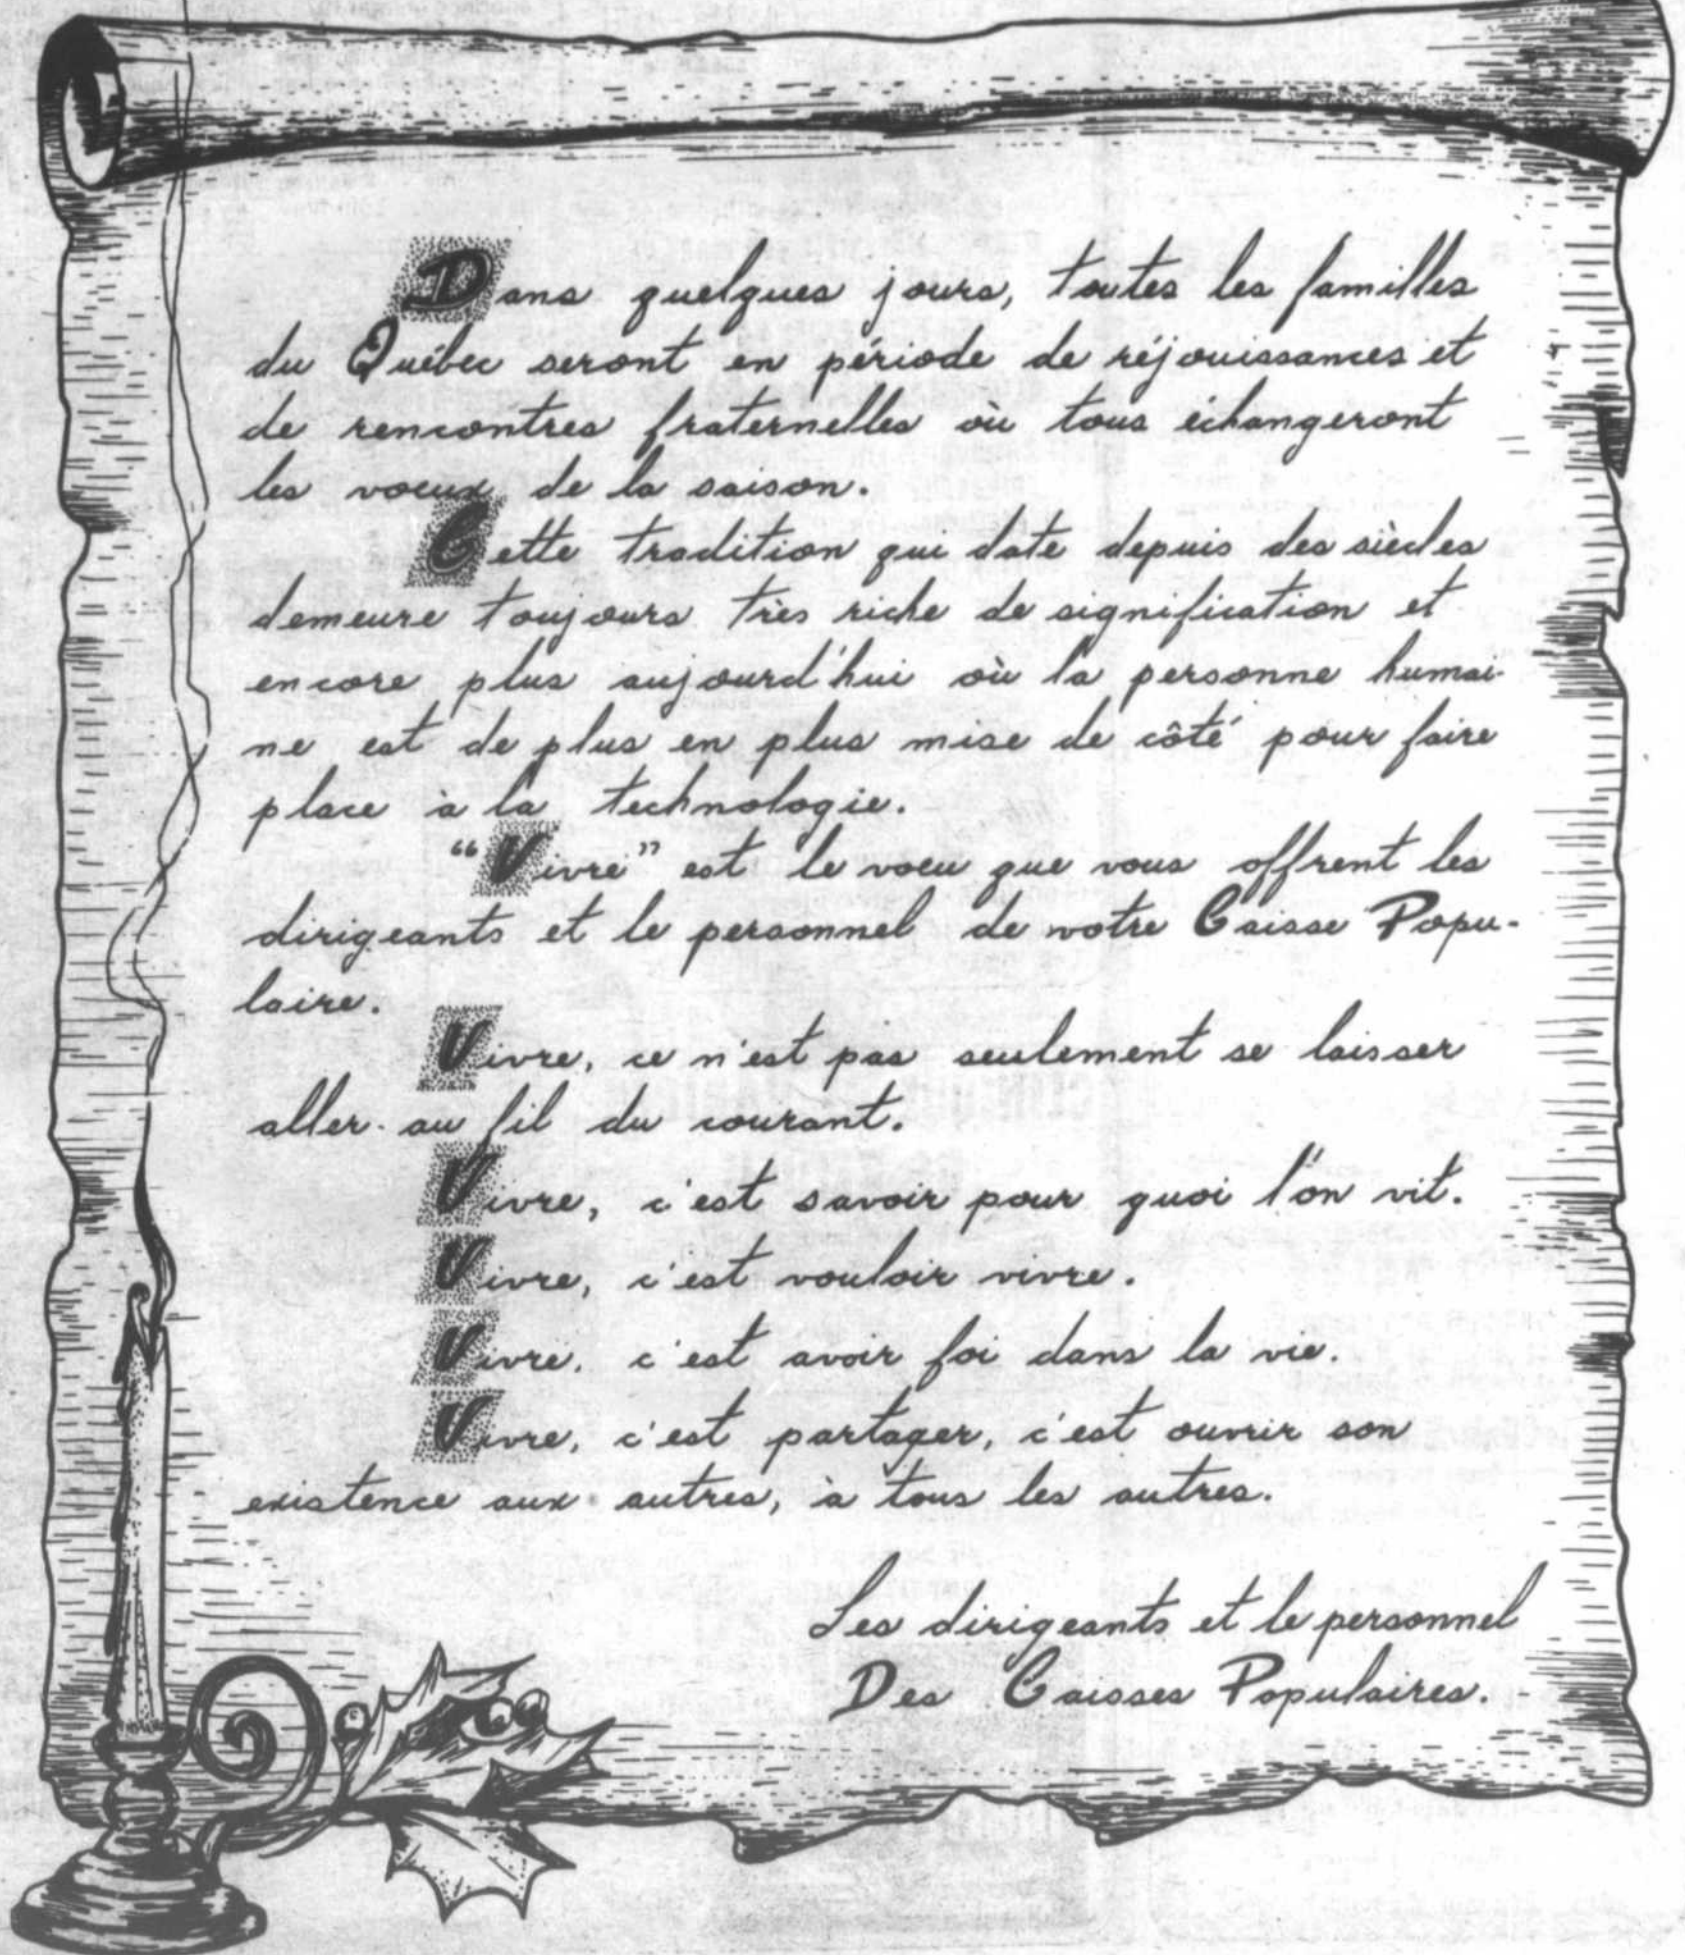 Dans quelques jours, toutes les familles
du Québec seront en période de réjouissances et
de rencontres fraternelles où tous échangeront
les voeux de la saison.
Cette tradition qui date depuis des siècles
demeure toujours très riche de signification et
encore plus aujourd'hui où la personne humai-
ne est de plus en plus mise de côté pour faire
place à la technologie.
"Vivre" est le voeu que vous offrent les
dirigeants et le personnel de votre Caisse Popu-
laire.
Vivre, ce n'est pas seulement se laisser
aller au fil du courant.
Vivre, c'est savoir pour quoi l'on vit.
Vivre, c'est vouloir vivre.
Vivre, c'est avoir foi dans la vie.
Vivre, c'est partager, c'est ouvrir son
existence aux autres, à tous les autres.
Les dirigeants et le personnel
Des Caisses Populaires.